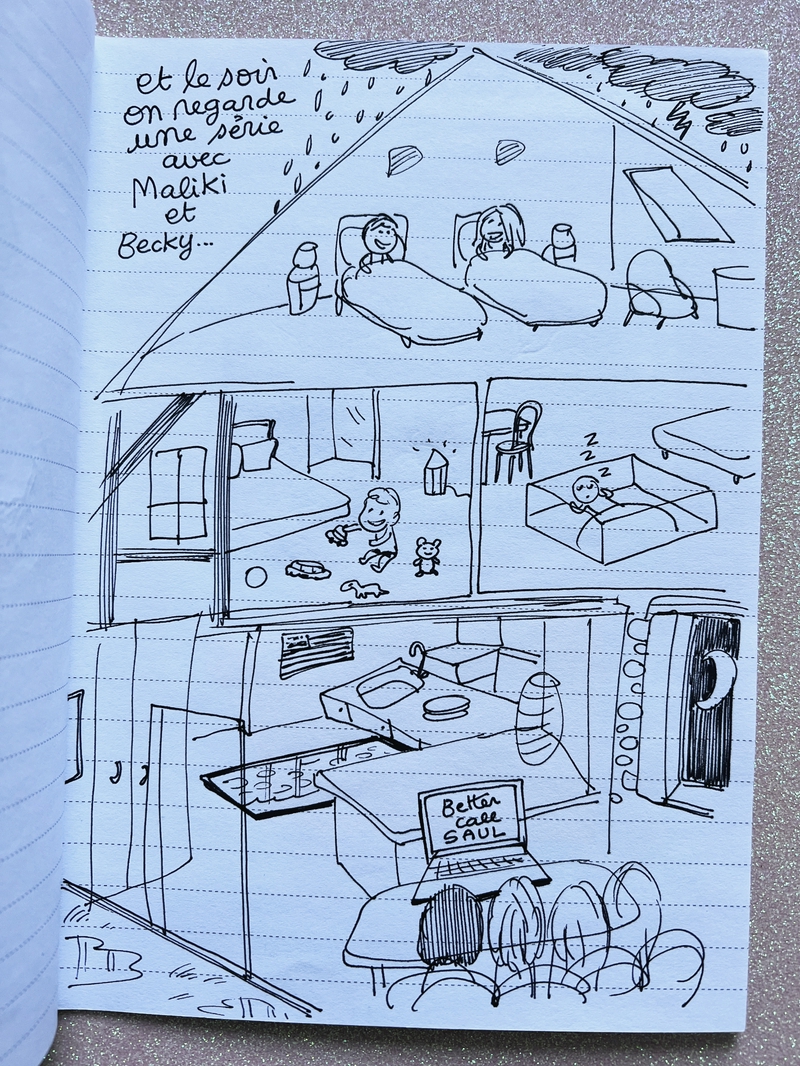 et le soir
on regarde
une série
avec
Maliki
et
Becky...
z
z
z
Better
call
SAUL